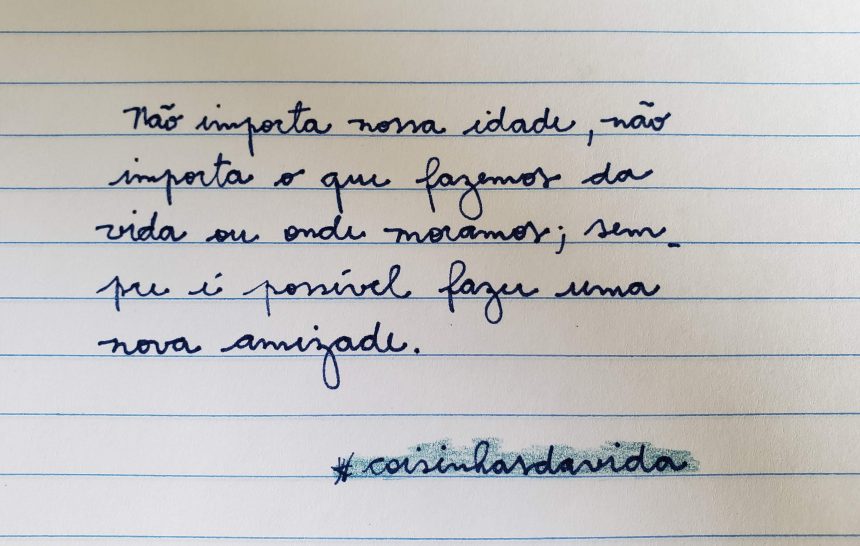 Não importa nossa idade, não
importa o que fazemos da
vida ou onde moramos; sem-
pre é possível fazer uma
nova amizade.
#coisinhasdavida